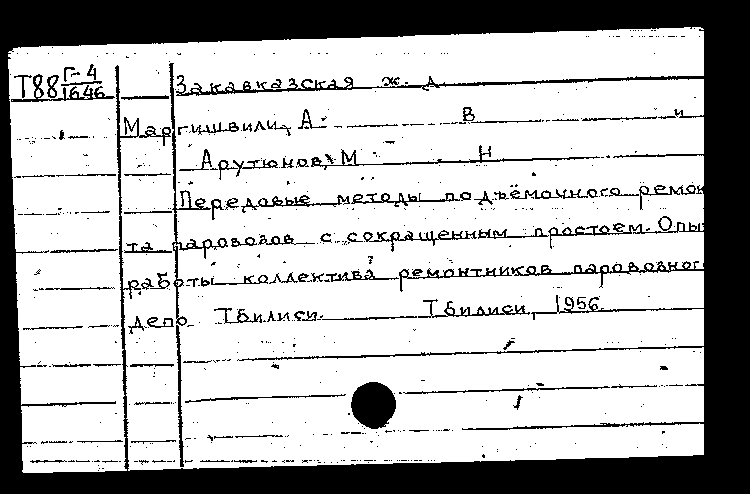 Т88 Г-4/1646 Закавказская ж. д.
Маргишвили, А. В. и
Арутюнов, М. Н.
Передовые методы подъёмочного ремон
та паровозов с сокращенным простоем. Опы
работы коллектива ремонтников паровозног
депо Тбилиси. Тбилиси, 1956